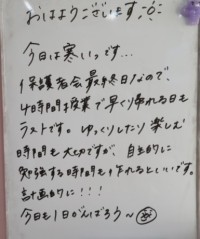 おはようございます
今日は寒いっです…
保護者会最終日なので、
4時間授業で早く帰れる日も
ラストです。ゆっくりしたり楽しむ
時間も大切ですが、自主的に
勉強する時間も作れるといいです。
計画的に!!!
今日も1日がんばろう〜